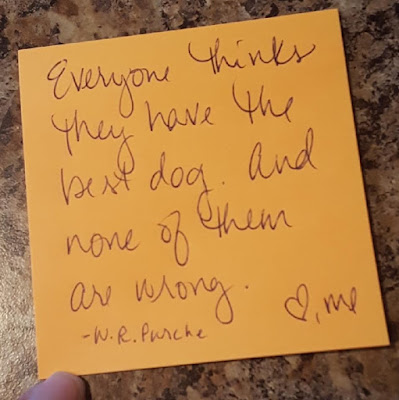 Everyone thinks
they have the
best dog. And
none of them
are wrong.
-W.R. Purche
♡, me